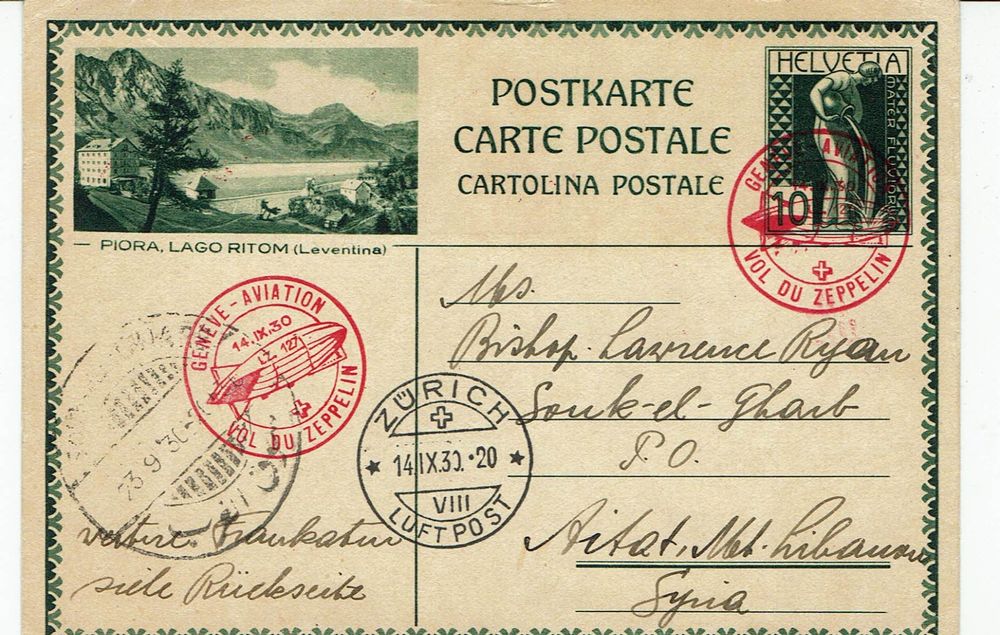 POSTKARTE
CARTE POSTALE
CARTOLINA POSTALE
HELVETIA
MATER FLUVIORUM
10
GENÈVE-AVIATION
VOL DU ZEPPELIN
PIORA, LAGO RITOM (Leventina)
GENÈVE-AVIATION
14.IX.30
LZ. 127
VOL DU ZEPPELIN
ZÜRICH
14.IX.30.·20
VIII
LUFTPOST
23 9 30
Bishop. Lawrence Ryan
Souk-el-Gharb
P.O.
Aitat, Mt. Libanon
Syria
weitere Frankatur
siehe Rückseite